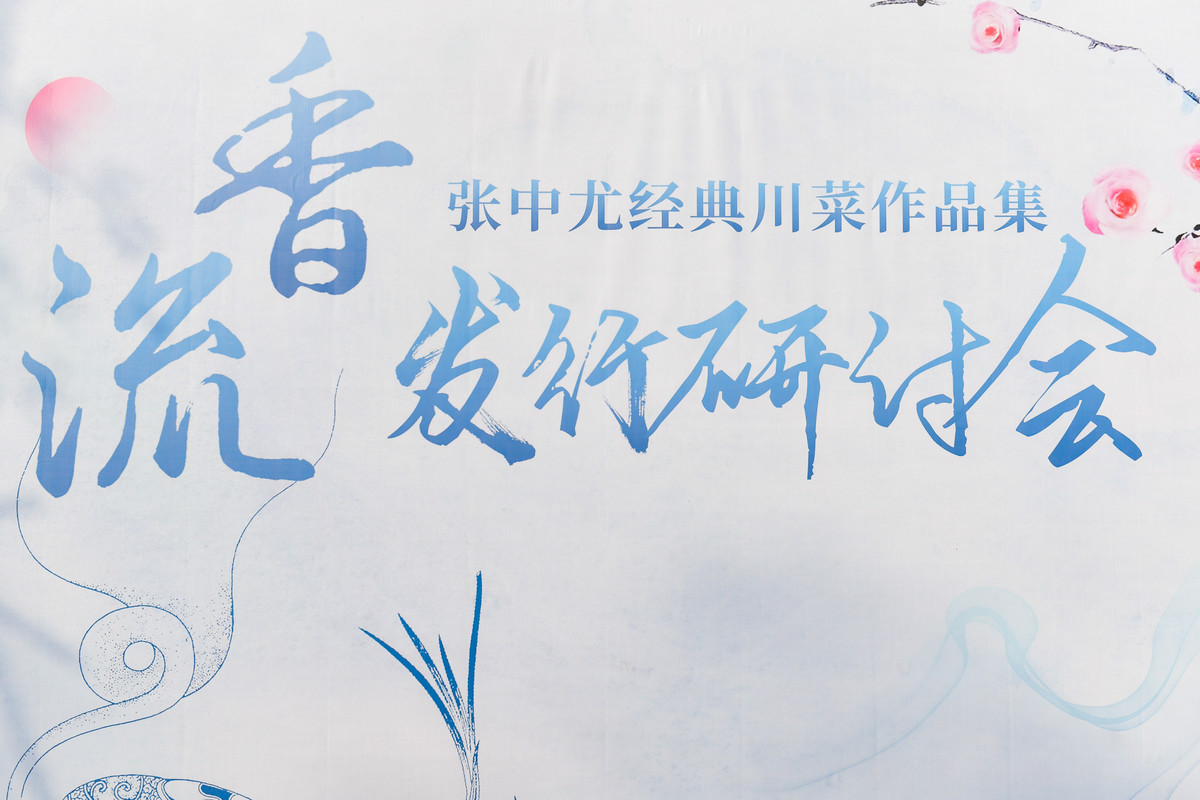 流香
张中尤经典川菜作品集
发行研讨会